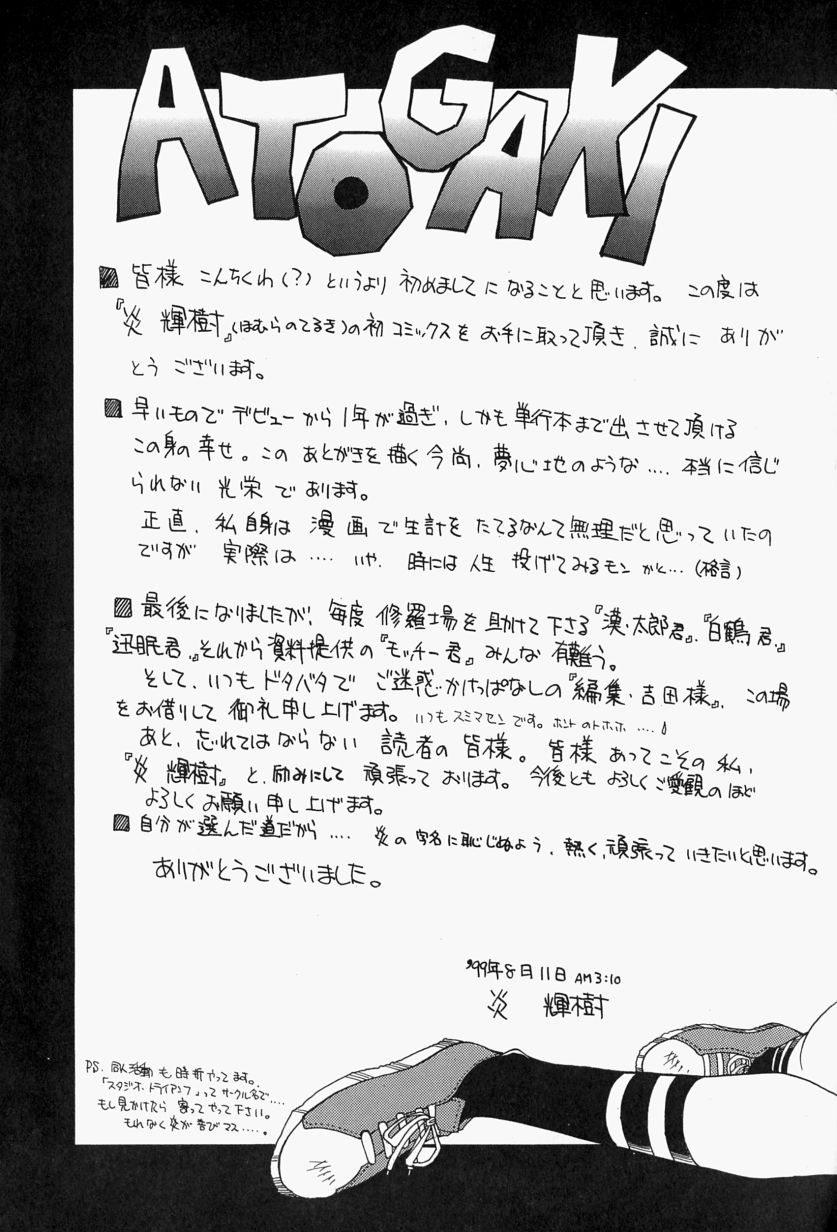 ATOGAKI
■ 皆様 こんちくわ(?) というより 初めまして になることと思います。 この度は
『炎 輝樹』(ほむらのてるき)の初コミックスを お手に取って頂き、誠に ありが
とう ございます。
■ 早いもので デビューから 1年が過ぎ、しかも 単行本まで出させて頂ける
この身の幸せ。この あとがきを描く今尚、夢心地のような…. 本当に信じ
られない 光栄 であります。
正直、私自身は 漫画で生計を たてるなんて無理だと思っていたの
ですが 実際は …. いや、 時には 人生 投げてみるモン かと… (格言)
■ 最後になりましたが、毎度 修羅場を助けて下さる『漢・太郎君』、『白鶴君』、
『迅眠君』、それから資料提供の『モッチー君』みんな 有難う。
そして、いつも ドタバタで ご迷惑・かけっぱなしの『編集・吉田様』、 この場
をお借りして 御礼申し上げます。 いつも スミマセン です。 ホント のトホホ ….
あと、忘れてはならない 読者の皆様。皆様 あってこその 私、
『炎 輝樹』と、励みにして 頑張って おります。 今後とも よろしくご愛観のほど
よろしく お願い 申し上げます。
■ 自分が選んだ道だから …. 炎の字名に恥じぬよう、熱く、頑張って いきたいと思います。
ありがとうございました。
'99年8月11日 AM3:10
炎 輝樹
PS. 同人活動 も 時折 やってます。
「スタジオ・トライアンフ」って サークル名で….
もし見かけたら 寄って やって 下さい。
もれなく炎が 喜び マス …..